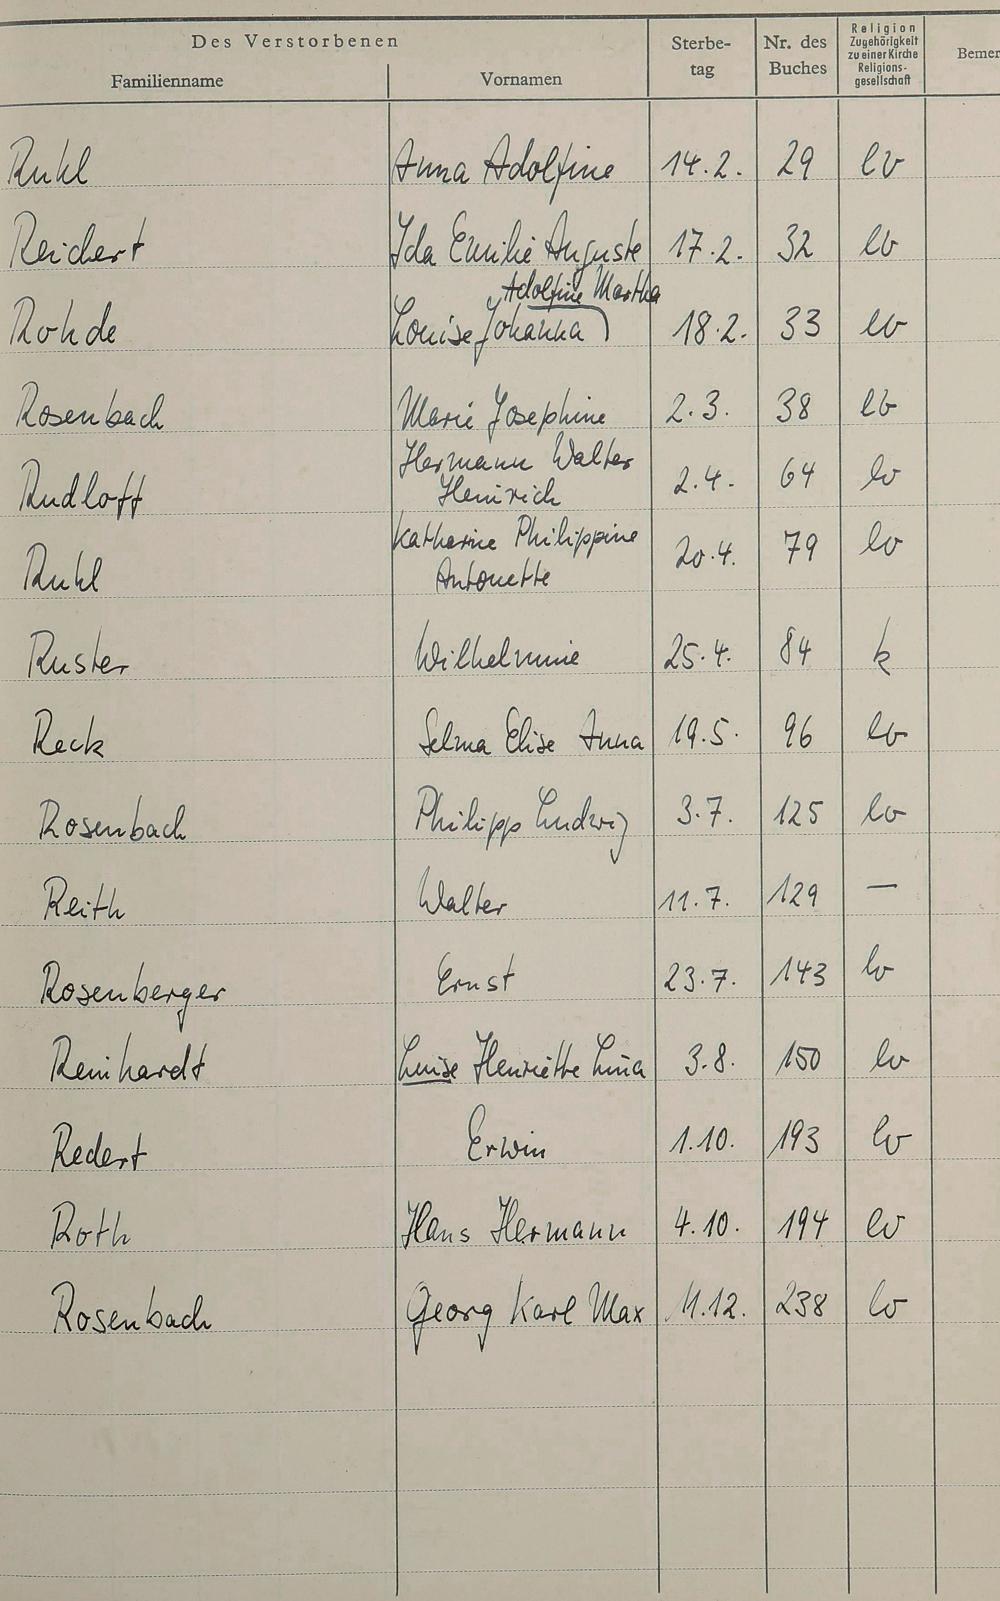 Des Verstorbenen
Familienname Vornamen Sterbe- tag Nr. des Buches Religion Zugehörigkeit zu einer Kirche Religions- gesellschaft Bemer
Ruhl Anna Adolfine 14.2. 29 ev
Reichert Ida Emilie Auguste 17.2. 32 ev
Adolfine Martha
Rohde Louise Johanna 18.2. 33 ev
Rosenbach Marie Josephine 2.3. 38 ev
Hermann Walter
Rudloff Heinrich 2.4. 64 ev
Katharine Philippine
Ruhl Antonette 20.4. 79 ev
Ruster Wilhelmine 25.4. 84 k
Reck Selma Elise Anna 19.5. 96 ev
Rosenbach Philipp Ludwig 3.7. 125 ev
Reith Walter 11.7. 129 —
Rosenberger Ernst 23.7. 143 ev
Reinhardt Luise Henriette Lina 3.8. 150 ev
Redert Erwin 1.10. 193 ev
Roth Hans Hermann 4.10. 194 ev
Rosenbach Georg Karl Max 11.12. 238 ev